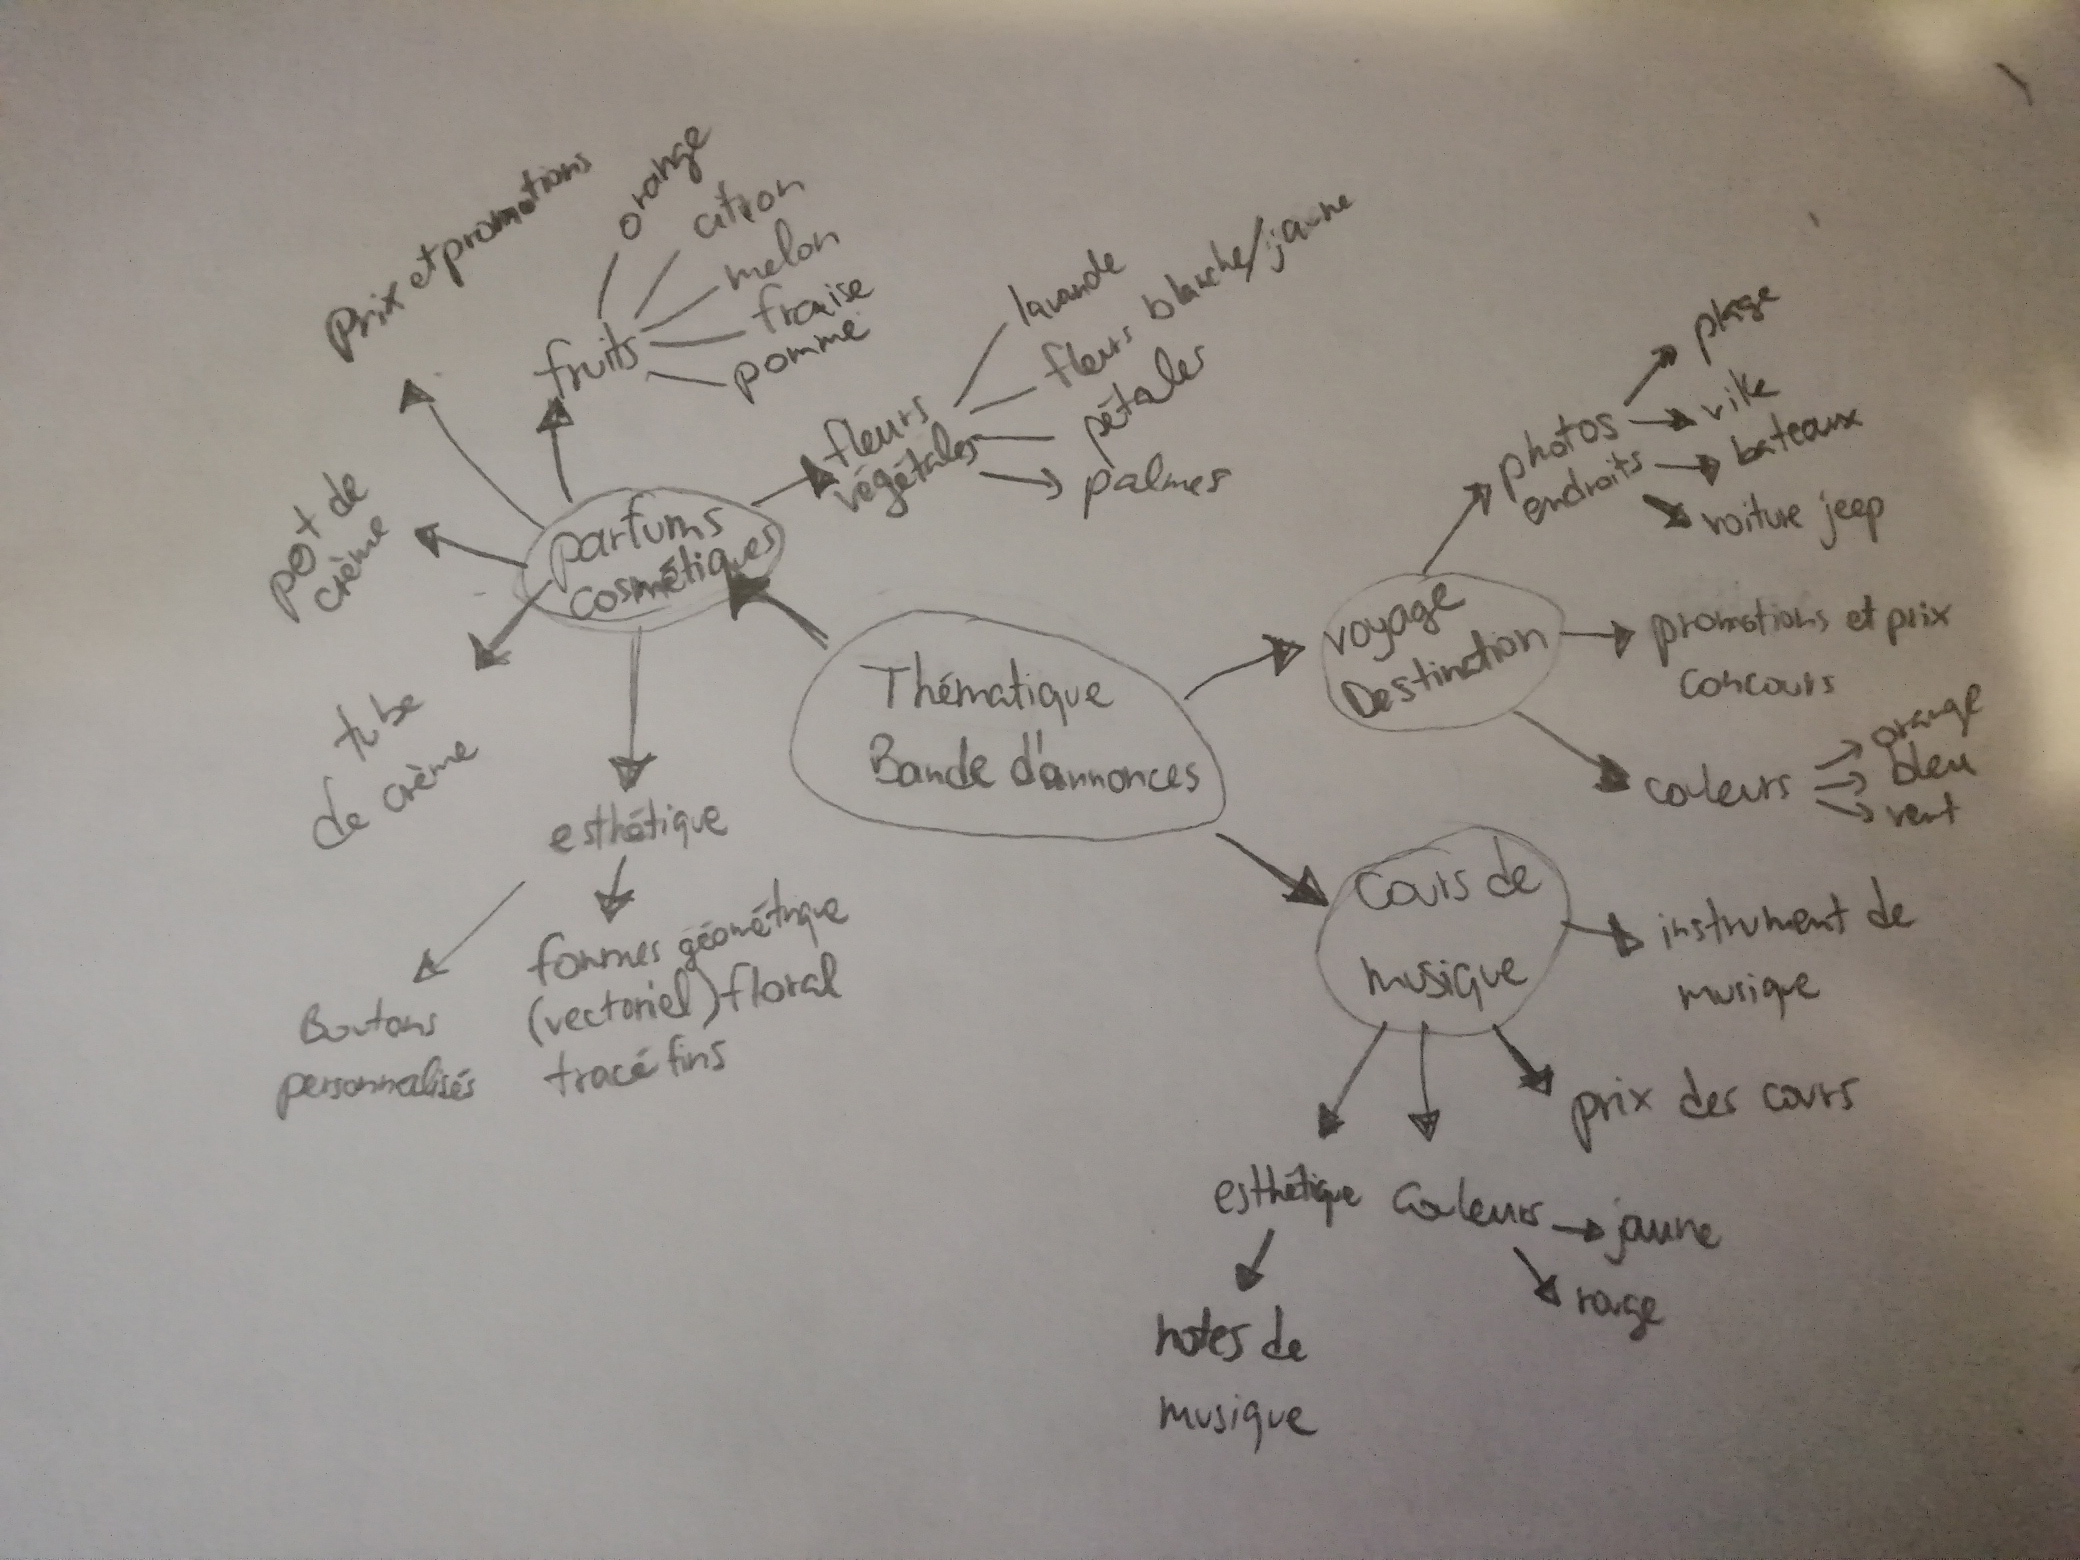 Thématique
Bande d'annonces
parfums
cosmétiques
Prix et promotions
fruits
orange
citron
melon
fraise
pomme
fleurs
végétales
lavande
fleurs blanche/jaune
pétales
palmes
pot de
crème
tube
de crème
esthétique
Boutons
personnalisés
formes géométrique
(vectoriel) floral
tracé fins
voyage
Destination
photos
endroits
plage
ville
bateaux
voiture jeep
promotions et prix
concours
couleurs
orange
bleu
vert
Cours de
musique
instrument de
musique
prix des cours
esthétique
notes de
musique
Couleurs
jaune
rouge